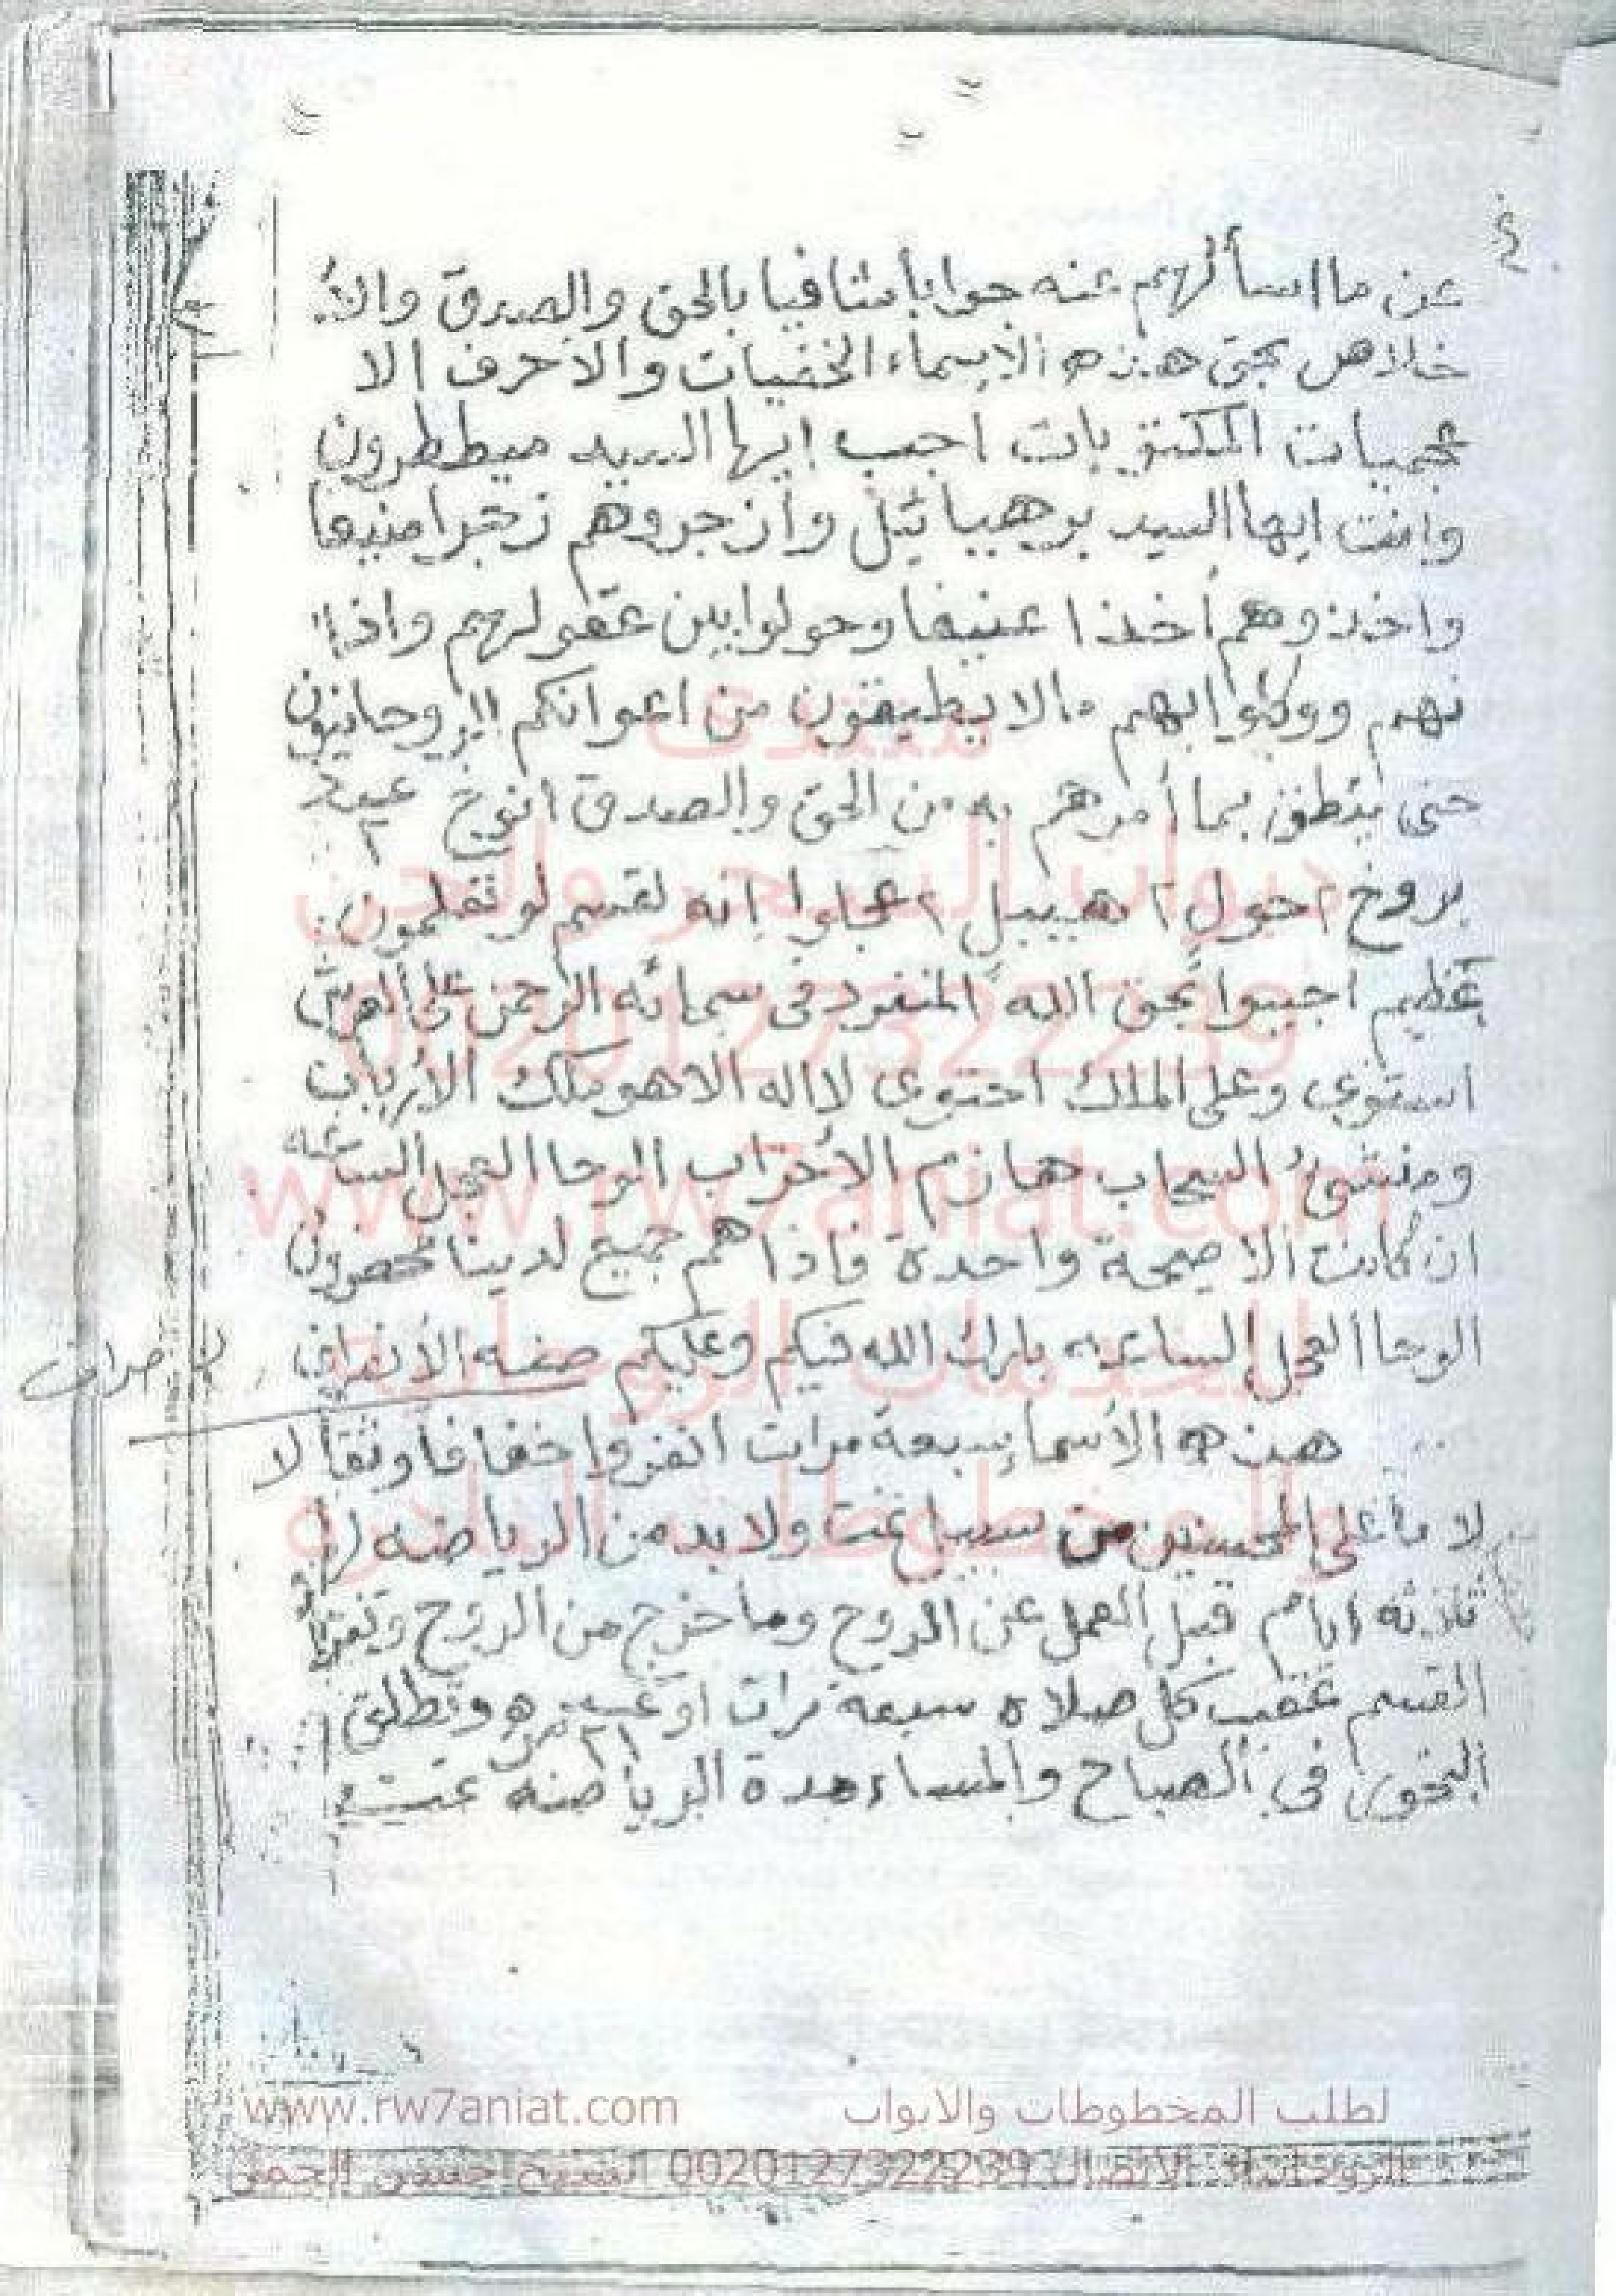 ٤
عن ما اسألهم عنه جوابا شافيا بالحق والصدق والا
خلاص بحق هذه الاسماء الخفيات والاحرف الا
عجميات المكتوبات اجب ايها السيد ميططرون
وانت ايها السيد برهيبائيل وأزجروهم زجرا منيعا
واخذوهم أخذا عنيفا وحولوا بين عقولهم واذا
نهم ووكلوا بهم مالا يطيقون من اعوانكم الروحانيون
حتى ينطقون بما أمرهم به من الحق والصدق انوخ
بروخ ٢ حول ٢ هيبيل ٢ عجلوا انه لقسم لو تعلمون
عظيم اجيبوا بحق الله المنفرد في سمائه الرحمن على العرش
استوى وعلى الملك احتوى لااله الاهو ملك الأرباب
ومنشئ السحاب هازم الأحزاب الوحا العجل الساعه
ان كانت الا صيحة واحدة فاذا هم جميع لدينا محضرون
الوحا العجل الساعه بارك الله فيكم وعليكم صفه الأنصراف
هذه الأسماء سبعة مرات انفروا خفافا وثقالا
لا ما على المحسنين من سبيل تمت ولابد من الرياضه لها
ثلاثه ايام قبل العمل عن الروح وما خرج من الروح وتقرأ
القسم عقيب كل صلاه سبعة مرات او وتطلق
٢١ مره
البخور في الصباح والمساء مدة الرياضه تمت
منتدى
ديوان السحر والجن
0020127322239
www.rw7aniat.com
للخدمات الروحانية
والمخطوطات النادرة
لطلب المخطوطات والابواب www.rw7aniat.com
الروحانية الاتصال 0020127322239 الشيخ